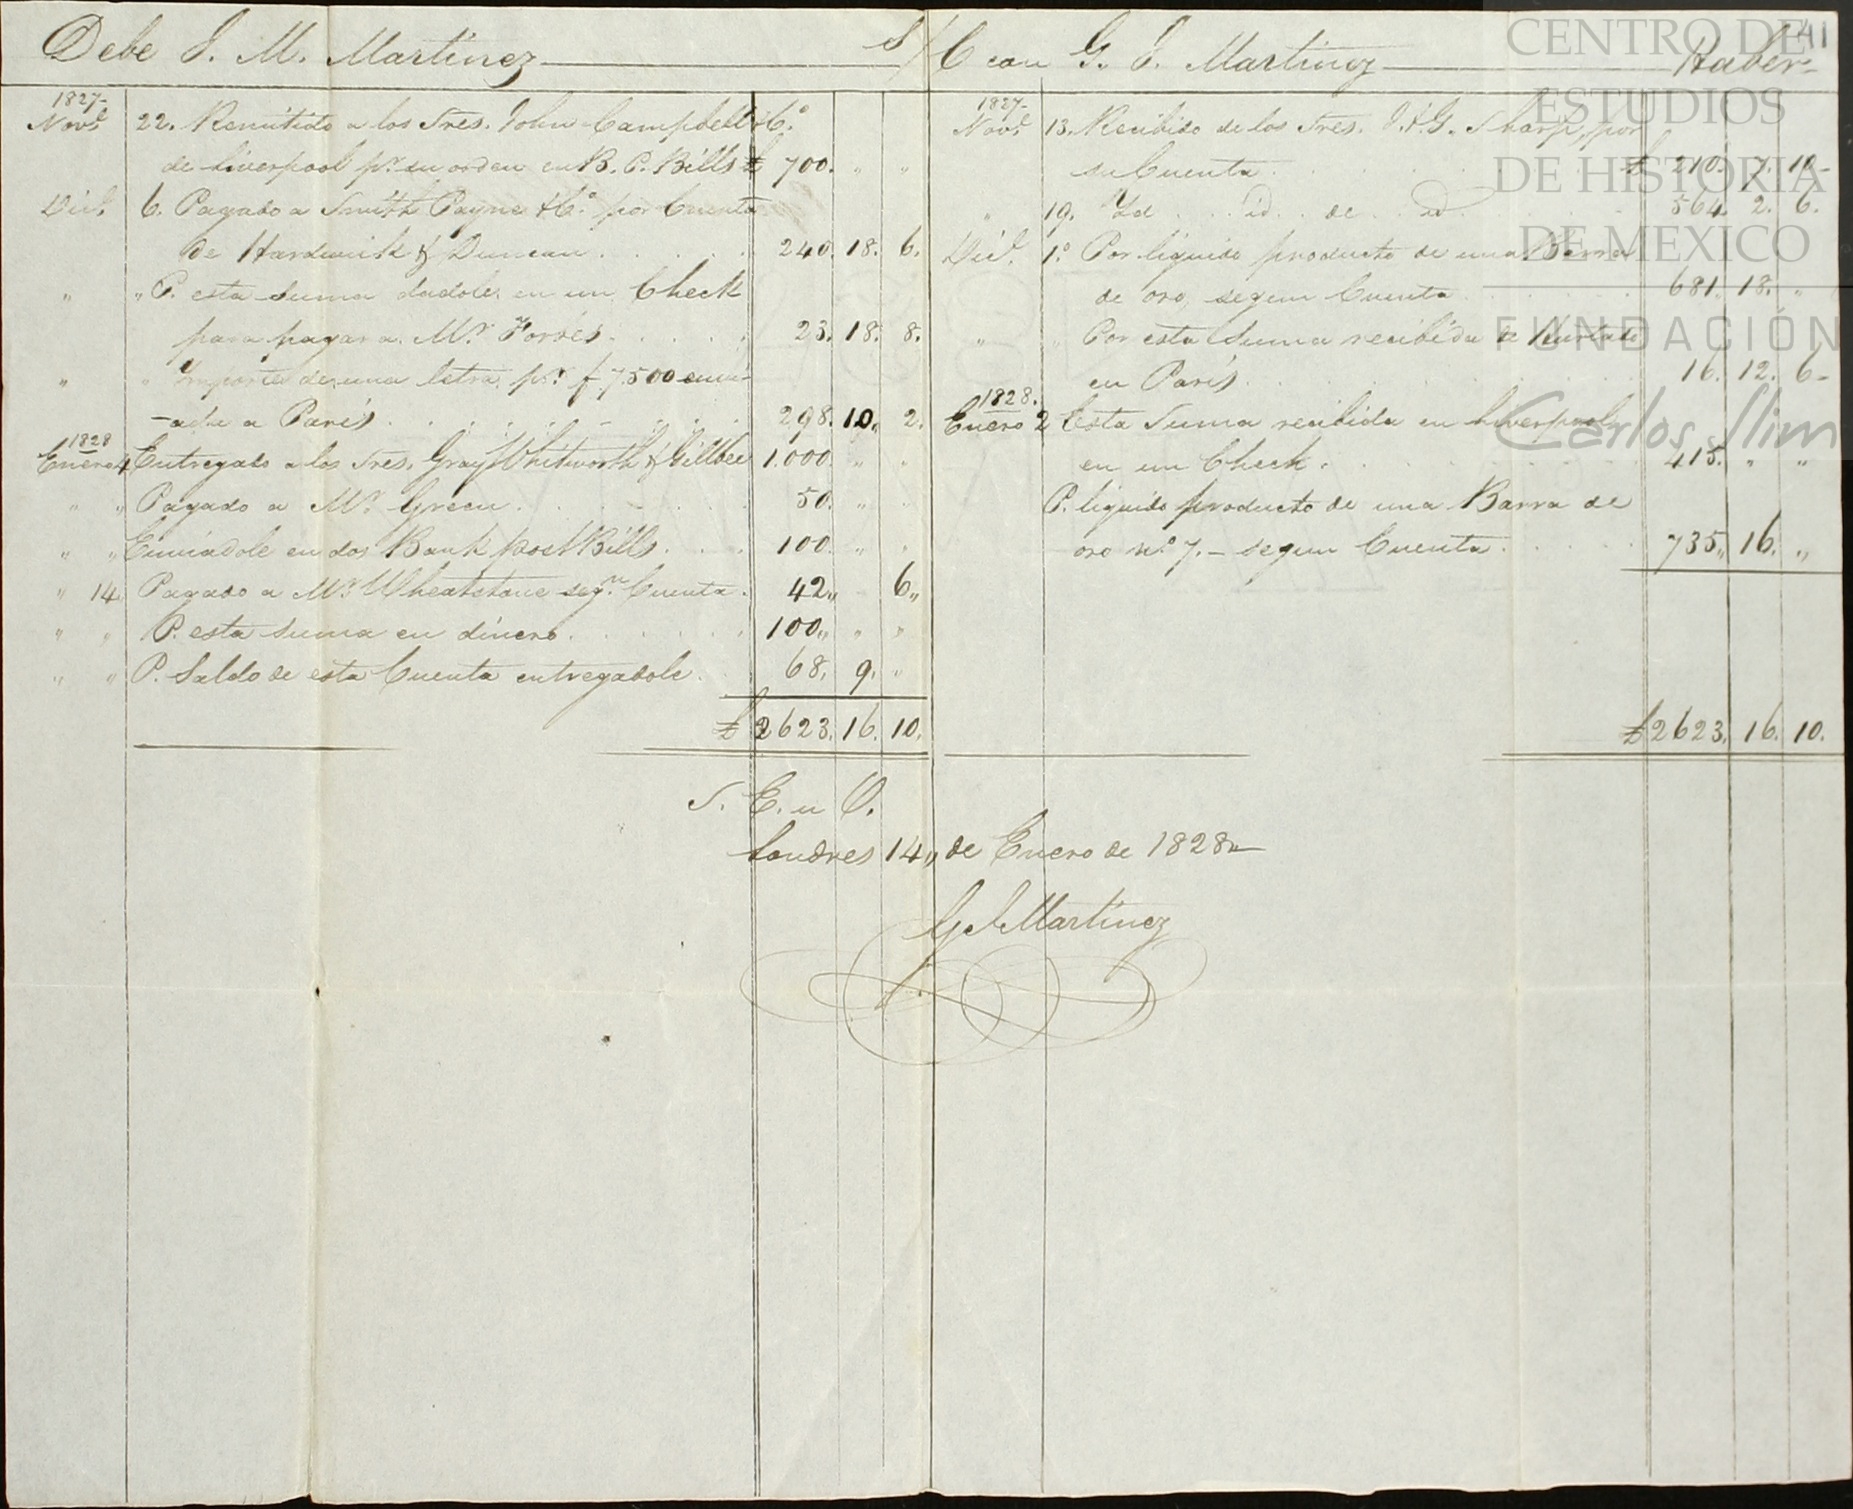 Debe J. M. Martinez S/C con G. J. Martinez Haber
41
1827-
Novᵉ 22. Remitido a los Sres. John Campbell & Cº
de Liverpool pʳ su orden en B. P. Bills £ 700. " "
Dicᵉ 6. Pagado a Smith Payne & Cº por Cuenta
de Hardwick & Duncan . . . . . 240. 18. 6.
" " P. esta suma dadole en un Check
para pagar a Mʳ Forres . . . . . 23. 18. 8.
" " Importe de una letra pʳ f 7.500 envi-
-ada a Paris . . . . . 298. 10. 2.
1828
Enero 4 Entregado a los Sres. Gray Whitworth & Gillbee 1.000. " "
" " Pagado a Mʳ Green . . . . . 50. " "
" " Enviadole en dos Bank post Bills . . . 100. " "
" 14 Pagado a Mʳ Wheatstone segⁿ Cuenta . 42 " 6 "
" " P. esta suma en dinero . . . . . 100 " " "
" " P. Saldo de esta Cuenta entregadole . . 68. 9. "
£ 2623. 16. 10.
1827-
Novᵉ 13. Recibido de los Sres. J. & G. Sharp, por
su Cuenta . . . . . £ 210. 7. 10-
" 19. Id . . id . . de . . id . . . . . 564. 2. 6.
Dicᵉ 1º Por liquido producto de una Barra
de oro, segun Cuenta . . . . . 681. 18. "
" " Por esta Suma recibida de Hurtado
en Paris . . . . . 16. 12. 6-
1828.
Enero 2 Esta Suma recibida en Liverpool
en un Check . . . . . 415. " "
P. liquido producto de una Barra de
oro nº 7. - segun Cuenta . . . . . 735 " 16. "
£ 2623. 16. 10.
S. E. u O.
Londres 14 " de Enero de 1828 "
G J Martinez
CENTRO DE
ESTUDIOS
DE HISTORIA
DE MEXICO
FUNDACIÓN
Carlos Slim